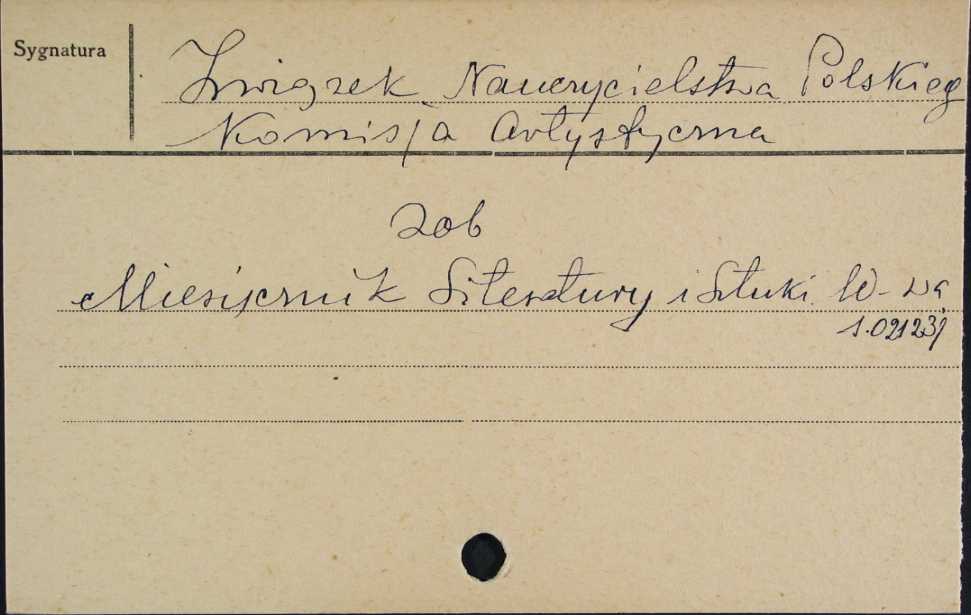 Sygnatura
Związek Nauczycielstwa Polskieg
Komisja Artystyczna
zob
Miesięcznik Literatury i Sztuki W-wa